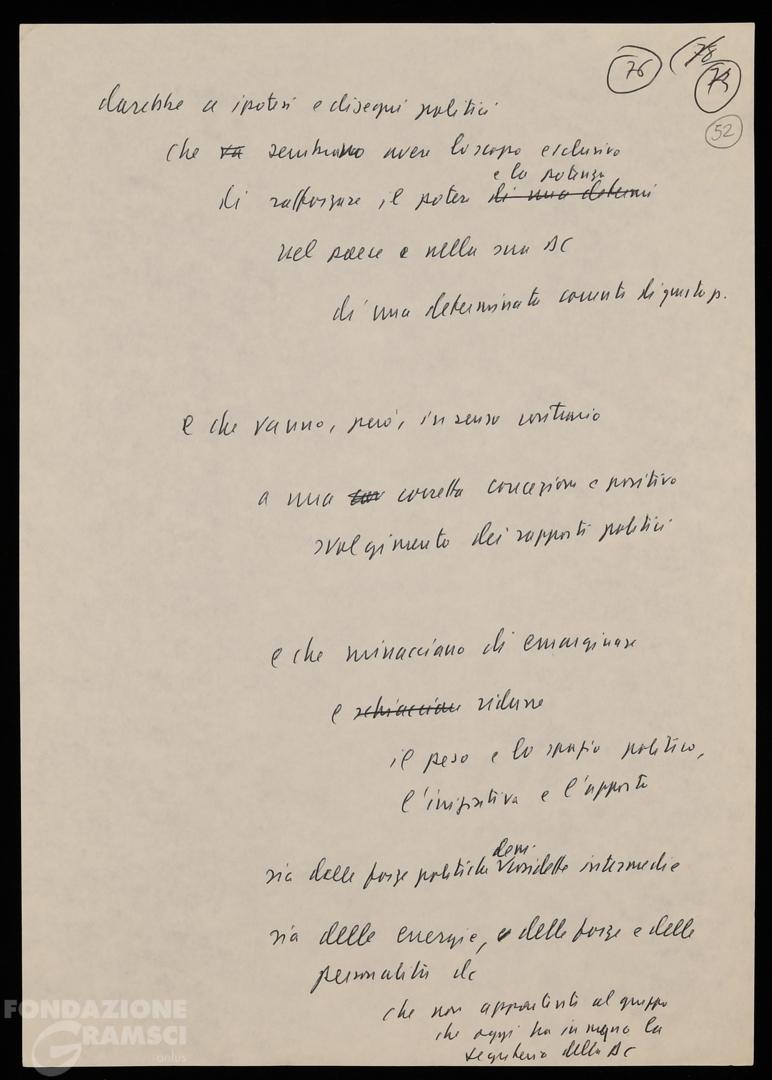 76 78 79
52
darebbe a ipotesi e disegni politici
che va sembrano avere lo scopo esclusivo
e la potenza
di rafforzare il potere di una determi
nel paese e nella sua DC
di una determinata corrente di questo p.
e che vanno, però, in senso contrario
a una corretta concezione e positivo
svolgimento dei rapporti politici
e che minacciano di emarginare
e schiacciare ridurre
il peso e lo spazio politico,
l'iniziativa e l'apporto
sia delle forze politiche intermedie
sia delle energie, delle forze e delle
personalità dc
che non appartenenti al gruppo
che oggi ha in mano la
segreteria della DC
FONDAZIONE
GRAMSCI
onlus